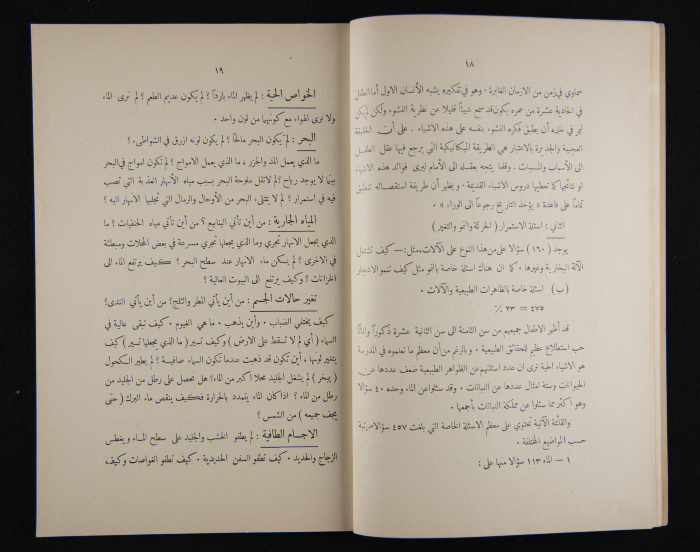 ١٨
سماوي في زمن من الازمان الغابرة ٠ وهو في تفكيره يشبه الأنسان الاول أما الطفل
في الحادية عشرة من عمره يكون قد سمع شيئاً قليلا عن نظرية النشوء ولكن لم يكن
ليمر في خلده أن يطبق فكرة النشوء بنفسه على هذه الاشياء ٠ على أن الحقيقة
العجيبة والجديرة بالاعتبار هي الطريقة الميكانيكية التي يرجع فيها عقل الطفل
الى الأسباب والمسببات ٠ وقلما يتجه بعقله الى الأمام ليرى فوائد هذه الاشياء
او نتائجها كما تعطيها دروس الأشياء القديمة ٠ ويظهر أن طريقة استقصائه تنطبق
تماماً على قاعدة « يؤخذ التاريخ رجوعاً الى الوراء » ٠
الثاني : اسئلة الاستمرار ( الحركة والنمو والتغير )
يوجد ( ١٦٠ ) سؤالا على من هذا النوع على الآلات، مثل :— كيف تشتغل
الآلة البخارية وغيرها ٠ كما ان هناك اسئلة خاصة بالنمو مثل كيف تنمو الاشجار
( ب ) اسئلة خاصة بالظاهرات الطبيعية والآلات ٠
٤٧٥ = ٢٣ ٪
قد أظهر الاطفال جميعهم من سن الثامنة الى سن الثانية عشرة ذكوراً واناثاً
حب استطلاع عظيم للحقائق الطبيعية ٠ وبالرغم من أن معظم ما تعلموه في المدرسة
هو الاشياء الحية ترى ان عدد اسئلتهم عن الظواهر الطبيعية ضعف عددها عن
الحيوانات وستة امثال عددها عن النباتات ٠ وقد سئلوا عن الماء وحده ٤٠ سؤالا
وهو اكثر مما سئلوا عن مملكة النباتات بأجمعها ٠
والقائمة الآتية تحتوي على معظم الاسئلة الخاصة التي بلغت ٤٥٧ سؤالا مرتبة
حسب المواضيع المختلفة ٠
١ — الماء ١١٣ سؤالا منها على :
١٩
الخواص الحية : لم يظهر الماء بارداً ؟ لم يكون عديم الطعم ؟ لم نرى الماء
ولا نرى الهواء مع كونهما من لون واحد ٠
البحر : لم يكون البحر مالحًا ؟ لم يكون لونه ازرق في الشواطىء٠؟
ما الذي يعمل المد والجزر ، ما الذي يعمل الامواج ؟ لم تكون امواج في البحر
بينما لا يوجد رياح ؟ لم لا تقل ملوحة البحر بسبب مياه الأنهار العذبة التي تصب
فيه في استمرار ؟ لم لا يمتلىء البحر من الأوحال والرمال التي تجلبها الأنهار اليه ؟
المياه الجارية : من أين تأتي الينابيع ؟ من أين تأتي مياه الحنفيات ؟ ما
الذي يجعل الانهار تجري وما الذي يجعلها تجري مسرعة في بعض المحلات ومبطئة
في الاخرى ؟ لم يسكن ماء الانهار عند سطح البحر ؟ كيف يرتفع الماء الى
الخزانات ؟ وكيف يرتفع الى البيوت العالية ؟
تغير حالات الجسم : من أين يأتي المطر والثلج؟ من أين يأتي الندى؟
كيف يختفي الضباب ٠ وأين يذهب ٠ ما هي الغيوم ٠ كيف تبقى عالية في
السماء ( أي لم لا تسقط على الارض ) وكيف تسير ( ما الذي يجعلها تسير ) كيف
يتغير لونها ، أين تكون قد ذهبت عندما تكون السماء صافية ؟ لم يطير الكحول
( يتبخر ) لم يشغل الجليد محلا اكبر من الماء؟ هل نحصل على رطل من الجليد من
رطل من الماء ؟ اذا كان الماء يتمدد بالحرارة فكيف ينقص ماء البرك ( حتى
يجف جميعه ) من الشمس ؟
الاجسام الطافية : لم يطفو الخشب والجليد على سطح الماء ويغطس
الزجاج والحديد ٠ كيف تطفو السفن الحديدية ٠ كيف تطفو الغواصات وكيف